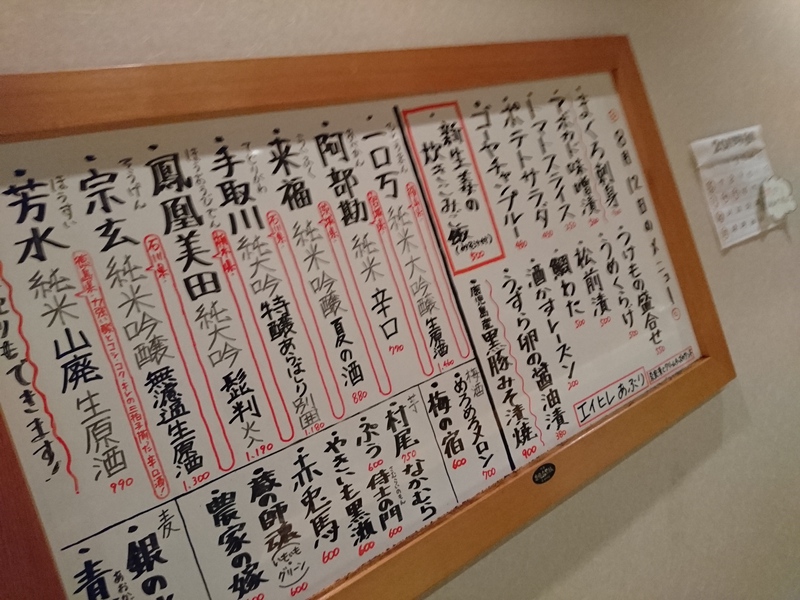 8月12日のメニュー
まぐろ刺身
アボカド味噌漬
トマトスライス
ポテトサラダ
ゴーヤチャンプルー
新生姜の
炊きこみご飯
500
うけもの盛合せ
うめくらげ
500
松前漬
500
鯛わた
500
酒かすレーズン
300
うずら卵の醤油漬
380
鹿児島産黒豚みそ漬焼
900
エイヒレあぶり
一口万
純米大吟醸 生原酒
1.460
阿部勘
純米 辛口
790
来福
純米吟醸 夏の酒
880
手取川
純大吟 特醸あらばしり 別囲
1.180
鳳凰美田
純大吟 髭判 火入
1.190
宗玄
純米吟醸 無濾過生原酒
石川県
1.300
芳水
ほうすい
純米 山廃 生原酒
徳島県
990
もできます!
梅酒
めろめろメロン
700
梅の宿
600
芋
村尾
750
なかむら
ぷう
600
侍士の門
600
やきいも黒瀬
600
赤兎馬
600
蔵の師魂
いもいも
グリーン
600
農家の嫁
麦
銀の
青